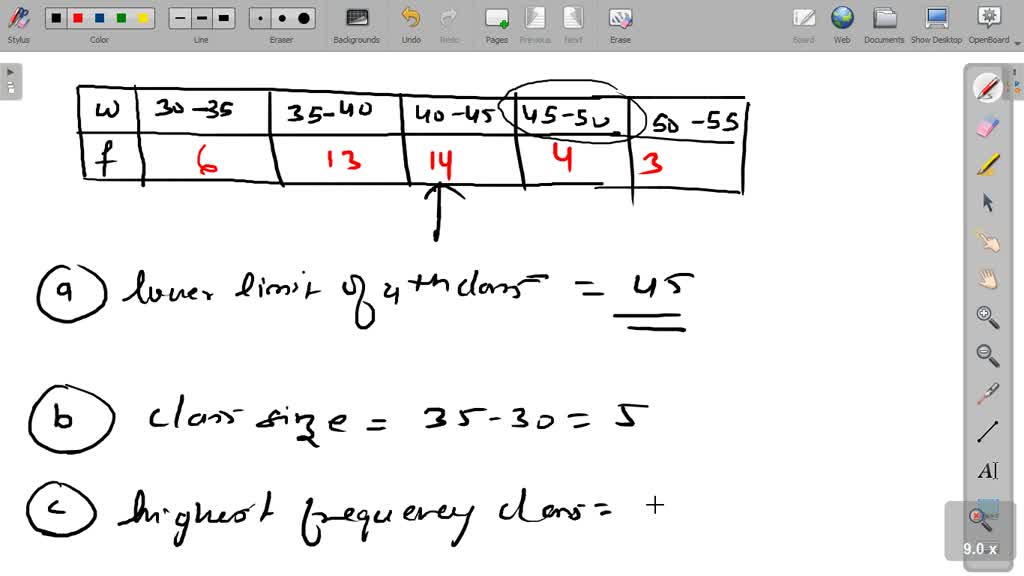 Stylus Color Line Eraser Backgrounds Undo Redo Pages Previous Next Erase Board Web Documents Show Desktop OpenBoard
w 30-35 35-40 40-45 45-50 50-55
f 6 13 14 4 3
a lower limit of 4th class = 45
b class size = 35-30 = 5
c highest frequency class =
AI
9.0 x